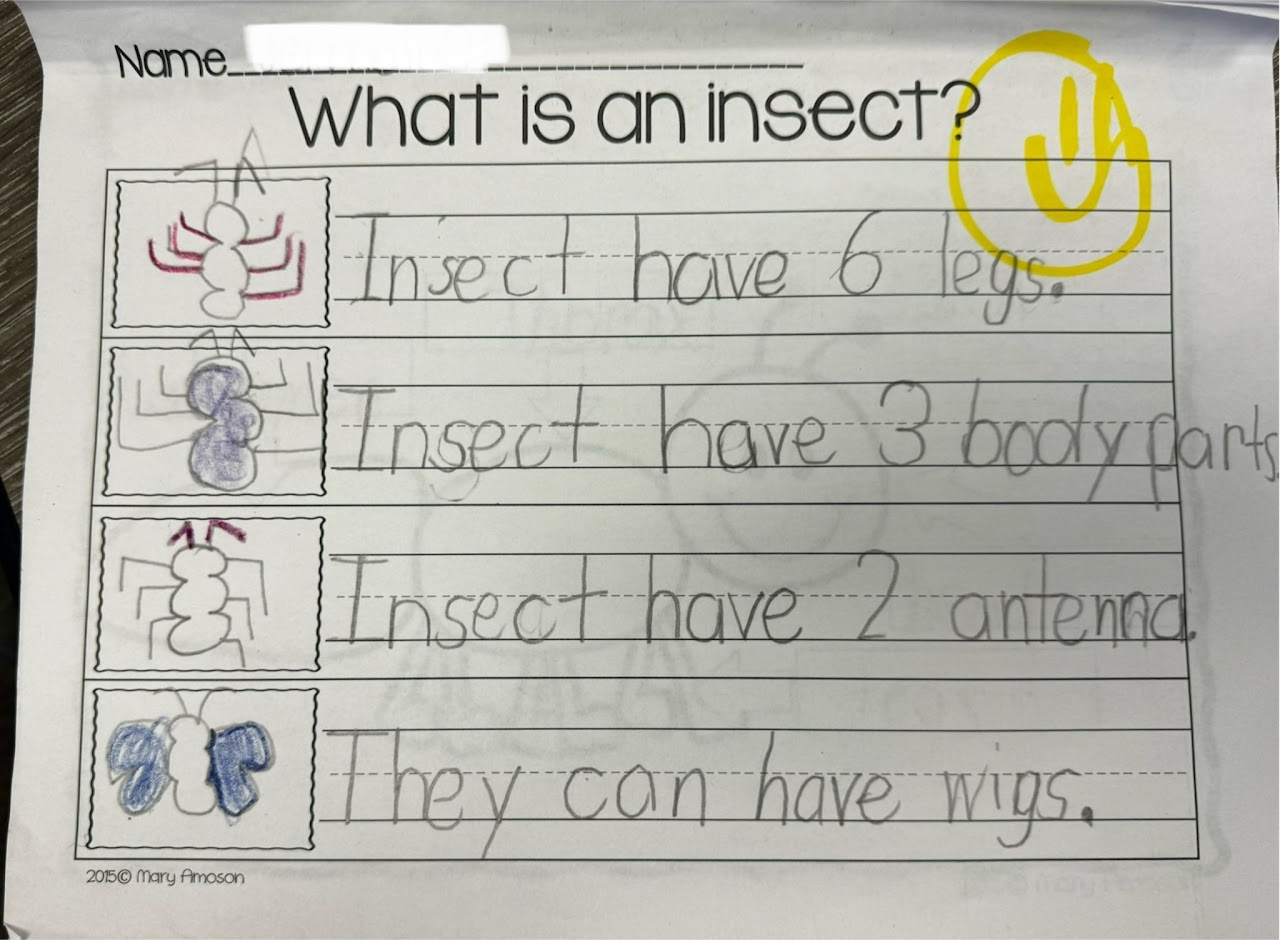 Name
What is an insect?
Insect have 6 legs.
Insect have 3 body parts.
Insect have 2 antenna.
They can have wigs.
2015© Mary Amoson